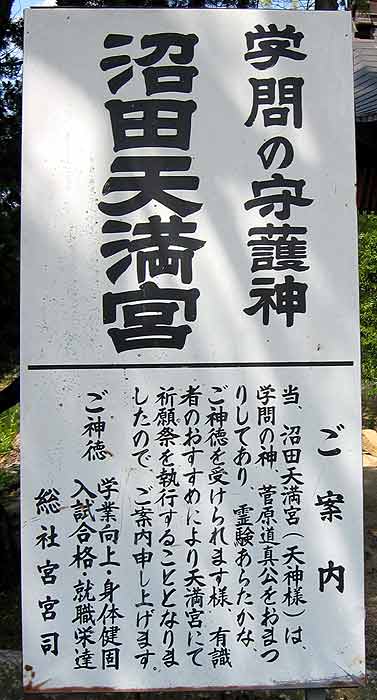 学問の守護神
沼田天満宮
ご案内
当、沼田天満宮（天神様）は、
学問の神、菅原道真公をおまつ
りしてあり、霊験あらたかな、
ご神徳を受けられます様、有識
者のおすすめにより天満宮にて
祈願祭を執行することとなりま
したので、ご案内申し上げます。
ご神徳
学業向上・身体健固
入試合格・就職栄達
総社宮宮司